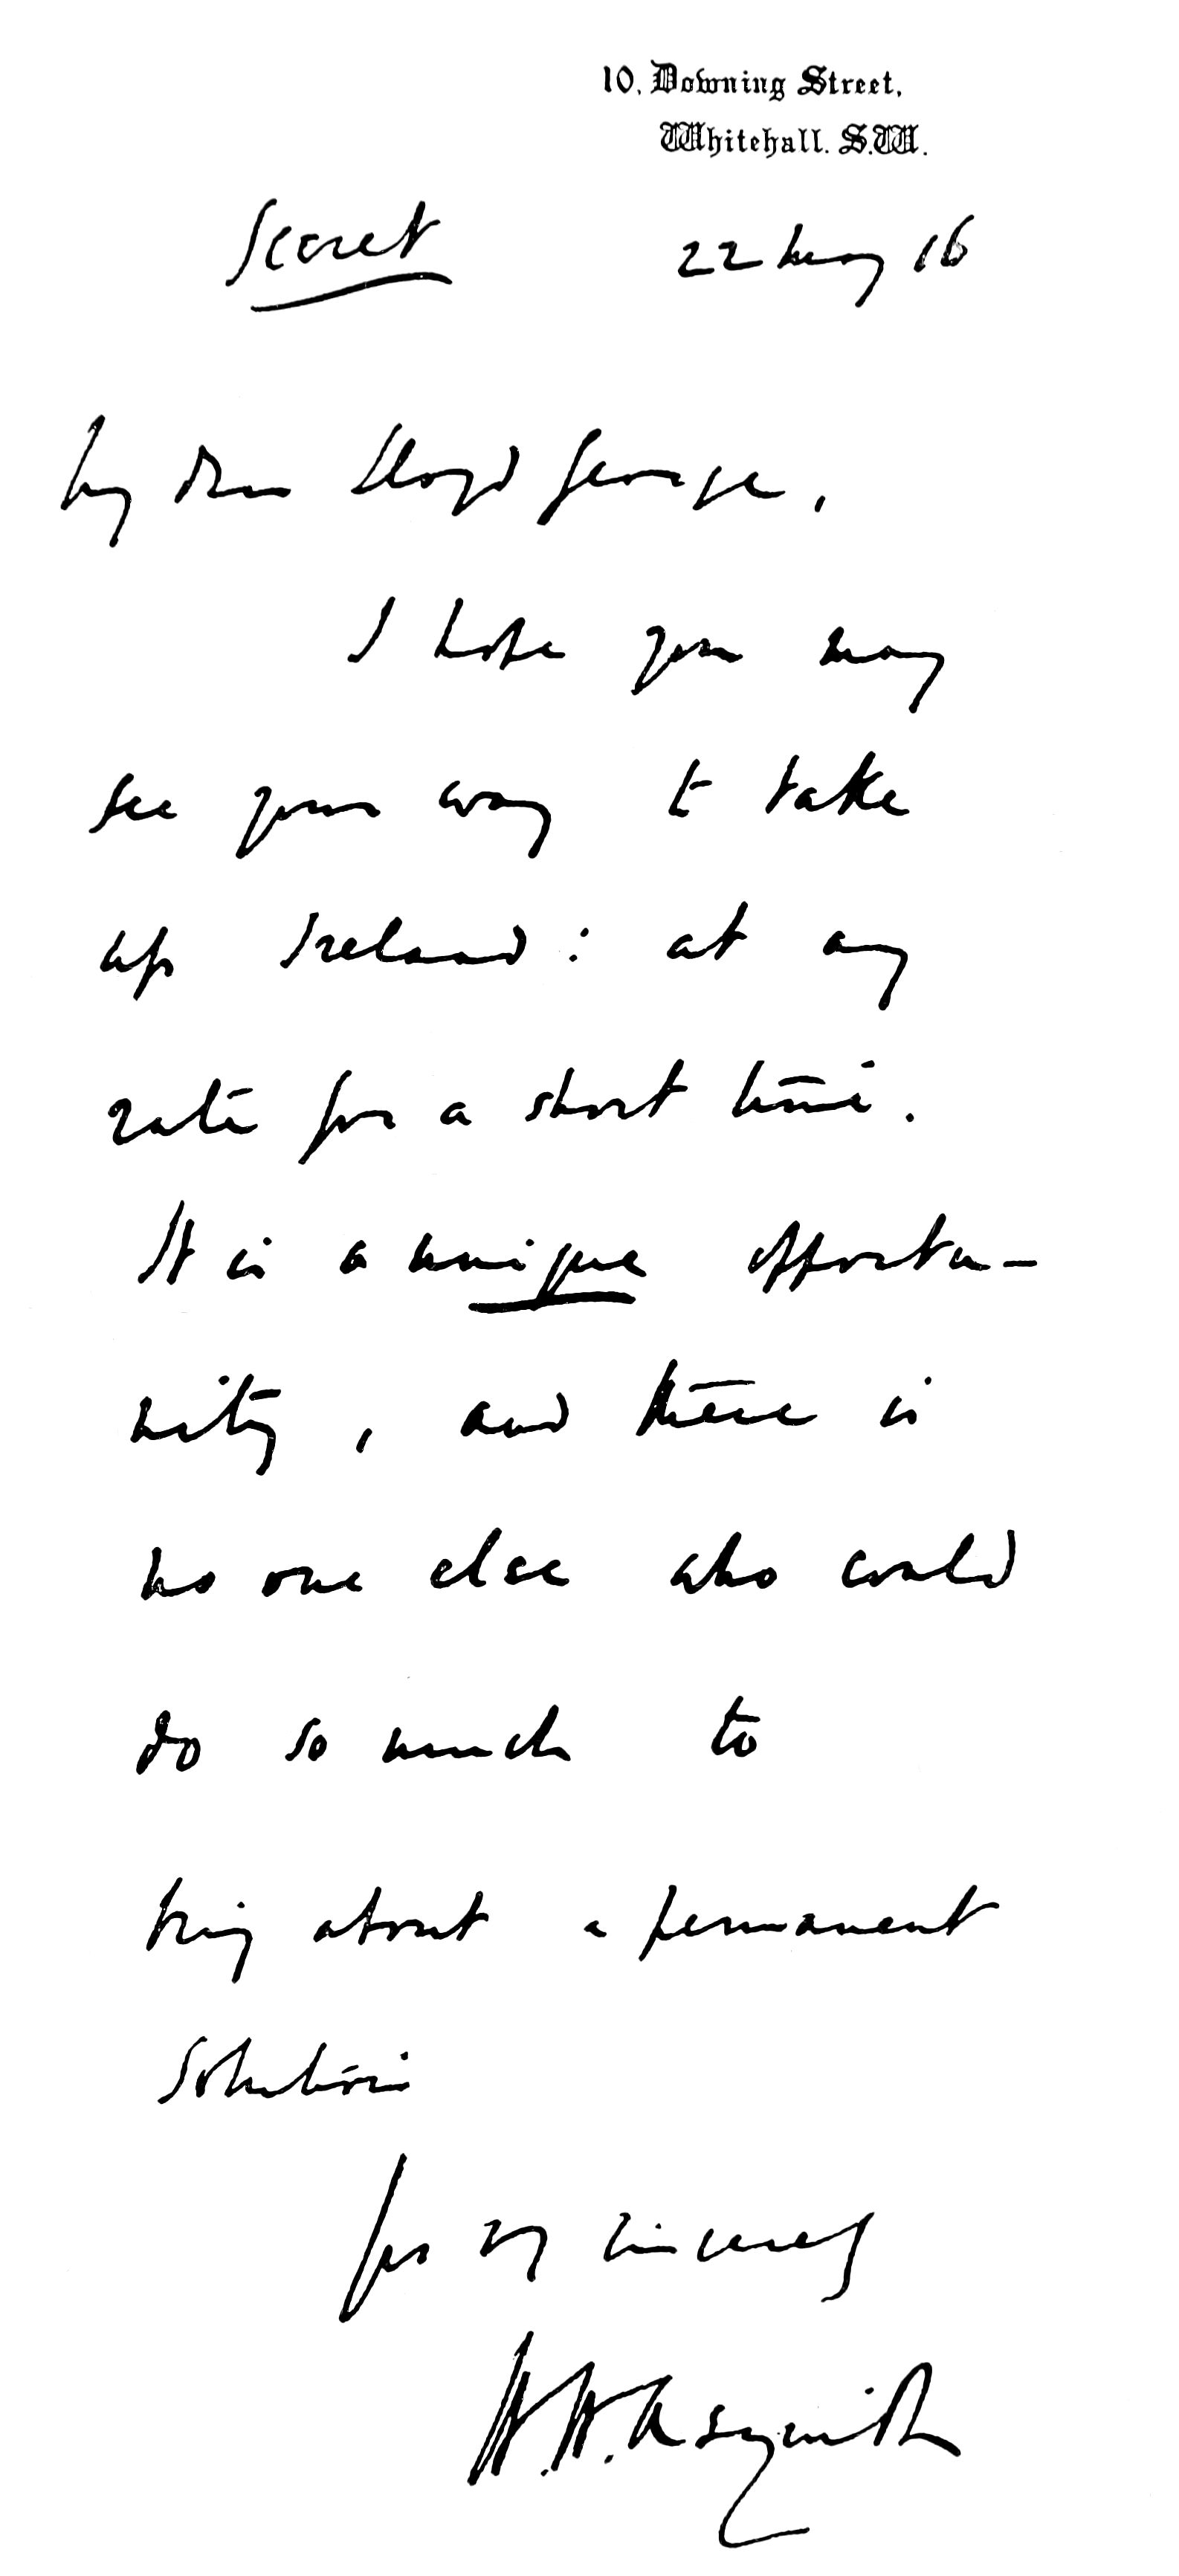 10, Downing Street,
Whitehall. S.W.
Secret 22 May 16
My dear Lloyd George,
I hope you may
see your way to take
up Ireland: at any
rate for a short time.
It is a unique opportu-
nity, and there is
no one else who could
do so much to
bring about a permanent
solution
Yrs vy sincerely
H.H.Asquith